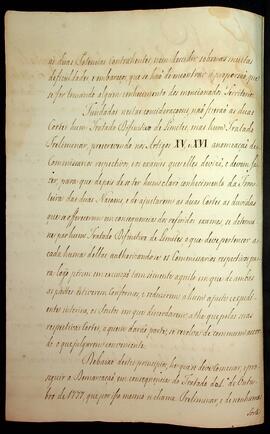 as duas Potencias Contratantes, nem decidir sobre as muitas
dificuldades e embaraços, que se hão de encontrar à proporsão, que
se for tomando algum conhecimento dos mencionados Territorios.
Fundadas nestas consideraçoens, não fizerão as duas
Cortes hum Tratado Difinitivo de Limites, mas hum Tratado
Preliminar, prescrevendo nos Artigos XV, e XVI a nomeação de
Commissarios respectivos, e os exames que elles devião, e deverão fa-
zer, para que depois de ter hum claro conhecimento da Fron-
teira das duas Naçoens, e de ajustarem as duas Cortes as duvidas
que se offerecerem em consequencia dos referidos exames, se determi-
ne por hum Tratado Difinitivo de Limites o que deve pertencer a
cada huma dellas: authorizando os Commissarios respectivos pa-
ra logo pôrem em execução tam sómente aquillo em que de ambas
as partes estiverem conformes, e reduzirem a hum ajuste e equali-
dades interina, os pontos em que discordarem: athe que pelas suas
respectivas Cortes, a quem darão parte, se resolva de commum acor-
do o que julgarem conveniente.
Debaixo destes principios, he que se deve comesar, e pros-
seguir a Demarcação em consequencia do Tratado do 1.º de Outu-
bro de 1777, que por isso mesmo se chama Preliminar, e de nenhuma
sorte